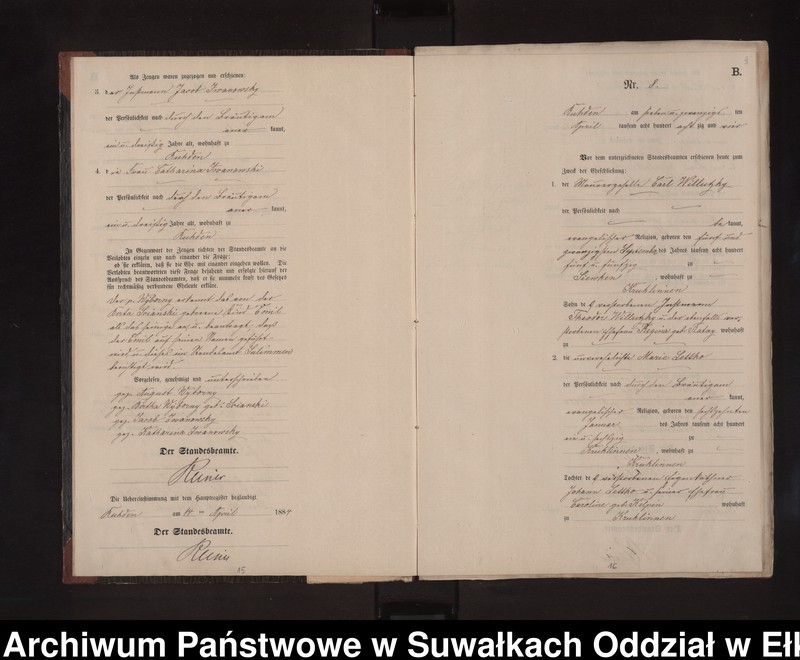 Als Zeugen waren zugezogen und erschienen:
3. der Inßmann Jacob Iwanowsky
der Persönlichkeit nach durch den Bräutigam
aner kannt,
ein u dreißig Jahre alt, wohnhaft zu
Ruhden
4. die Frau Catharina Iwanowski
der Persönlichkeit nach durch den Bräutigam
aner kannt,
ein u dreißig Jahre alt, wohnhaft zu
Ruhden
In Gegenwart der Zeugen richtete der Standesbeamte an die
Verlobten einzeln und nach einander die Frage:
ob sie erklären, daß sie die Ehe mit einander eingehen wollen. Die
Verlobten beantworteten diese Frage bejahend und erfolgte hierauf der
Ausspruch des Standesbeamten, daß er sie nunmehr kraft des Gesetzes
für rechtmäßig verbundene Eheleute erkläre.
Der p. Wyborny erkennt das von der
geborene Kind Emil
als das seinige an u. beantragt, daß
der Emil auf seinen Namen geführt
wird u dieses im Standesamt
wird.
Vorgelesen, genehmigt und unterschrieben
gez. August Wyborny
gez. Wyborny geb.
gez. Jacob Iwanowsky
gez. Katharina Iwanowsky
Der Standesbeamte.
Reiner
Die Uebereinstimmung mit dem Hauptregister beglaubigt
Ruhden am 14 ten April 1884
Der Standesbeamte.
Reiner
15
B.
Nr. 8.
Ruhden am sieben u. zwanzigst ten
April tausend acht hundert acht zig und vier
Vor dem unterzeichneten Standesbeamten erschienen heute zum
Zweck der Eheschließung:
1. der Maurergeselle Carl Willutzky
der Persönlichkeit nach
be kannt,
evangelischer Religion, geboren den fünf und
zwanzigsten des Jahres tausend acht hundert
fünf u fünfzig zu
, wohnhaft zu
Kruklinnen
Sohn des verstorbenen Inßmann
Theodor Willutzky u. der ebenfalls ver-
storbenen Ehefrau Regina geb. wohnhaft
zu
2. die unverehelichte Marie Letzko
der Persönlichkeit nach durch den Bräutigam
aner kannt,
evangelischer Religion, geboren den sechszehnten
Januar des Jahres tausend acht hundert
ein u sechzig zu
Kruklinnen , wohnhaft zu
Kruklinnen
Tochter des verstorbenen
Johann Letzko u. seiner Ehefrau
Caroline geb. wohnhaft
zu Kruklinnen
16
Archiwum Państwowe w Suwałkach Oddział w Ełk